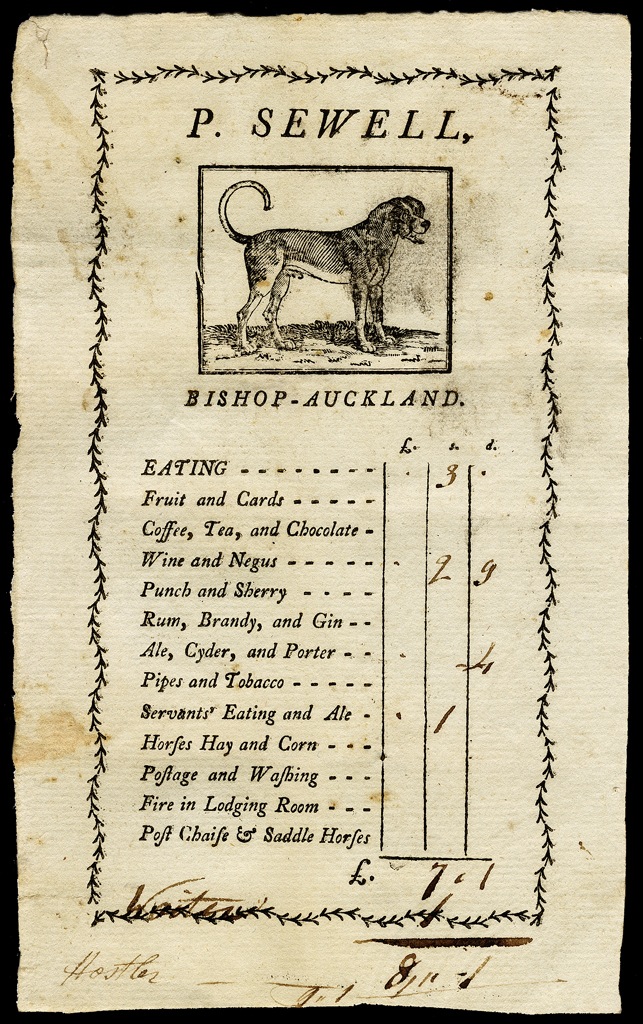 P. SEWELL,
BISHOP-AUCKLAND.
£. s. d.
EATING - - - - - - - - . 3 .
Fruit and Cards - - - - -
Coffee, Tea, and Chocolate -
Wine and Negus - - - - - . 2 9
Punch and Sherry - - - -
Rum, Brandy, and Gin - -
Ale, Cyder, and Porter - - . -4
Pipes and Tobacco - - - - -
Servants' Eating and Ale - . 1
Horſes Hay and Corn - - -
Poſtage and Waſhing - - -
Fire in Lodging Room - - -
Poſt Chaiſe & Saddle Horſes
£. 7 . 1
1
8 1
Hostler